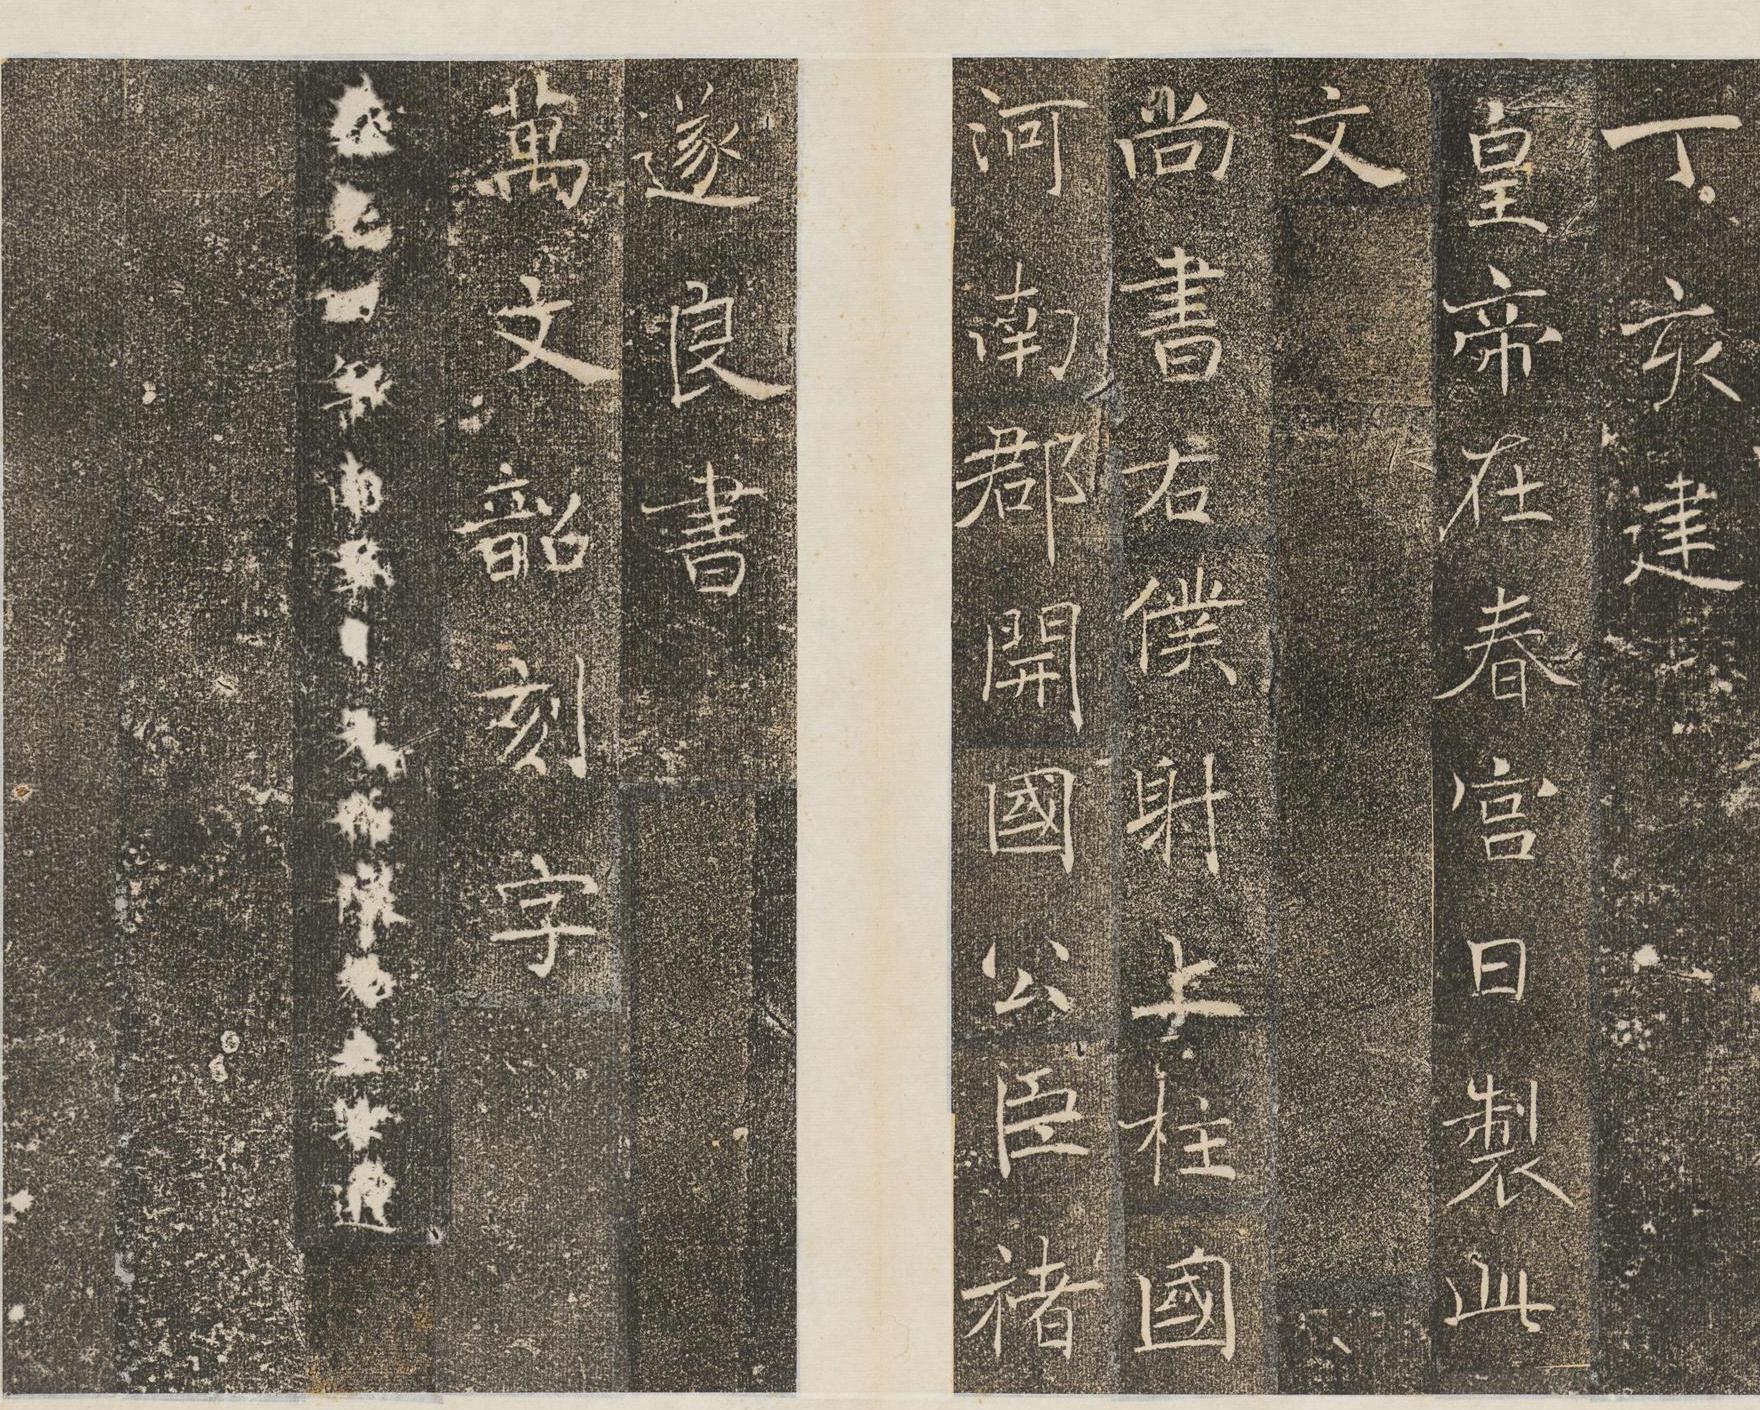 丁亥建
皇帝在春宮日製此
文
尚書右僕射上柱國
河南郡開國公臣褚
遂良書
萬文韶刻字